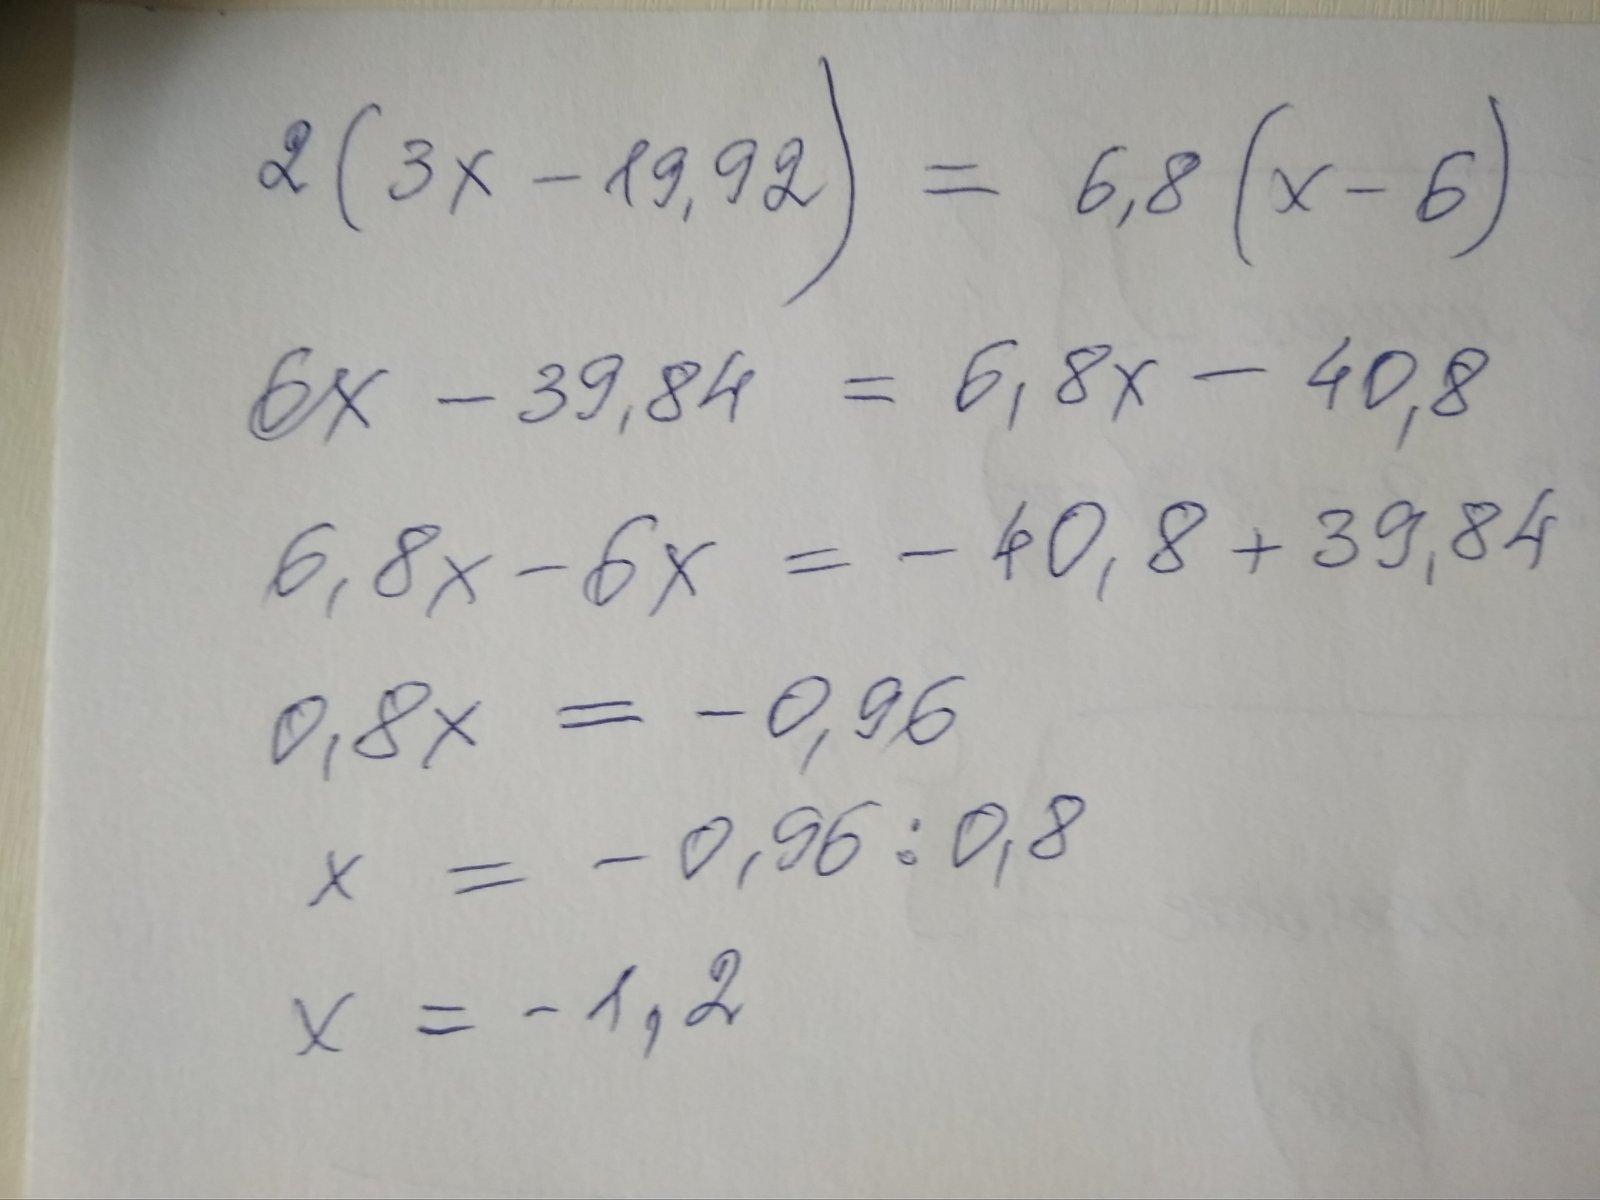 2(3x - 19,92) = 6,8(x - 6)
6x - 39,84 = 6,8x - 40,8
6,8x - 6x = - 40,8 + 39,84
0,8x = - 0,96
x = - 0,96 : 0,8
x = - 1,2